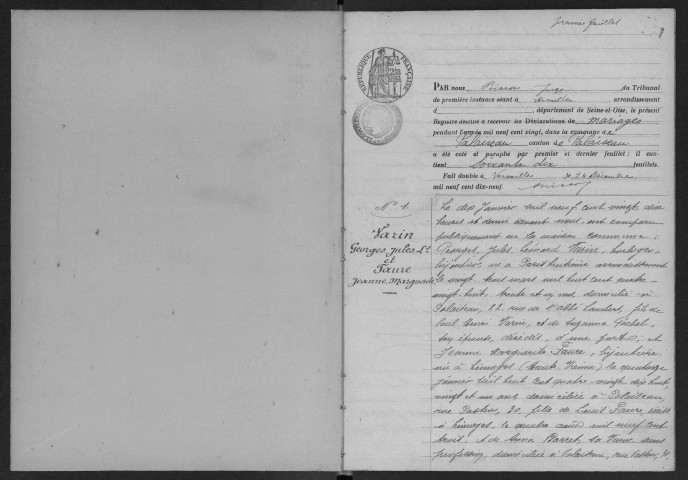 premier feuillet
RÉPUBLIQUE FRANÇAISE
PAR nous Bisson Juge du Tribunal
de première instance séant à Versailles arrondissement
d département de Seine-et-Oise, le présent
Registre destiné à recevoir les Déclarations de mariages
pendant l'année mil neuf cent vingt, dans la commune de
Palaiseau canton de Palaiseau
a été coté et paraphé par premier et dernier feuillet; il
contient soixante dix feuillets.
Fait double à Versailles le 24 décembre
mil neuf cent dix-neuf.
N° 1
Varin
Georges Jules Ld
et
Faure
Jeanne, Marguerite
Le dix Janvier mil neuf cent vingt, dix
heures et demie devant nous, ont comparu
publiquement en la maison commune:
Georges, Jules Léonard Varin, horloger
bijoutier, né à Paris huitième arrondissement
le vingt trois mars mil huit cent quatre-
vingt huit, trente et un ans domicilié à
Palaiseau, 22, rue de l'abbé fils de
Paul Henri Varin, et de Suzanne
époux, décédés, d'une part, et
Jeanne Marguerite Faure, bijoutière
née à Limoges (Haute Vienne) le quatorze
janvier mil huit cent quatre vingt dix huit,
vingt et un ans domiciliée à Palaiseau,
rue Pasteur, 30, fille de Louis Faure, décédé
à Limoges, le quatre août mil neuf cent
trois, et de Anna Barret, sa Veuve sans
profession, domiciliée à Palaiseau, rue Pasteur, 30,